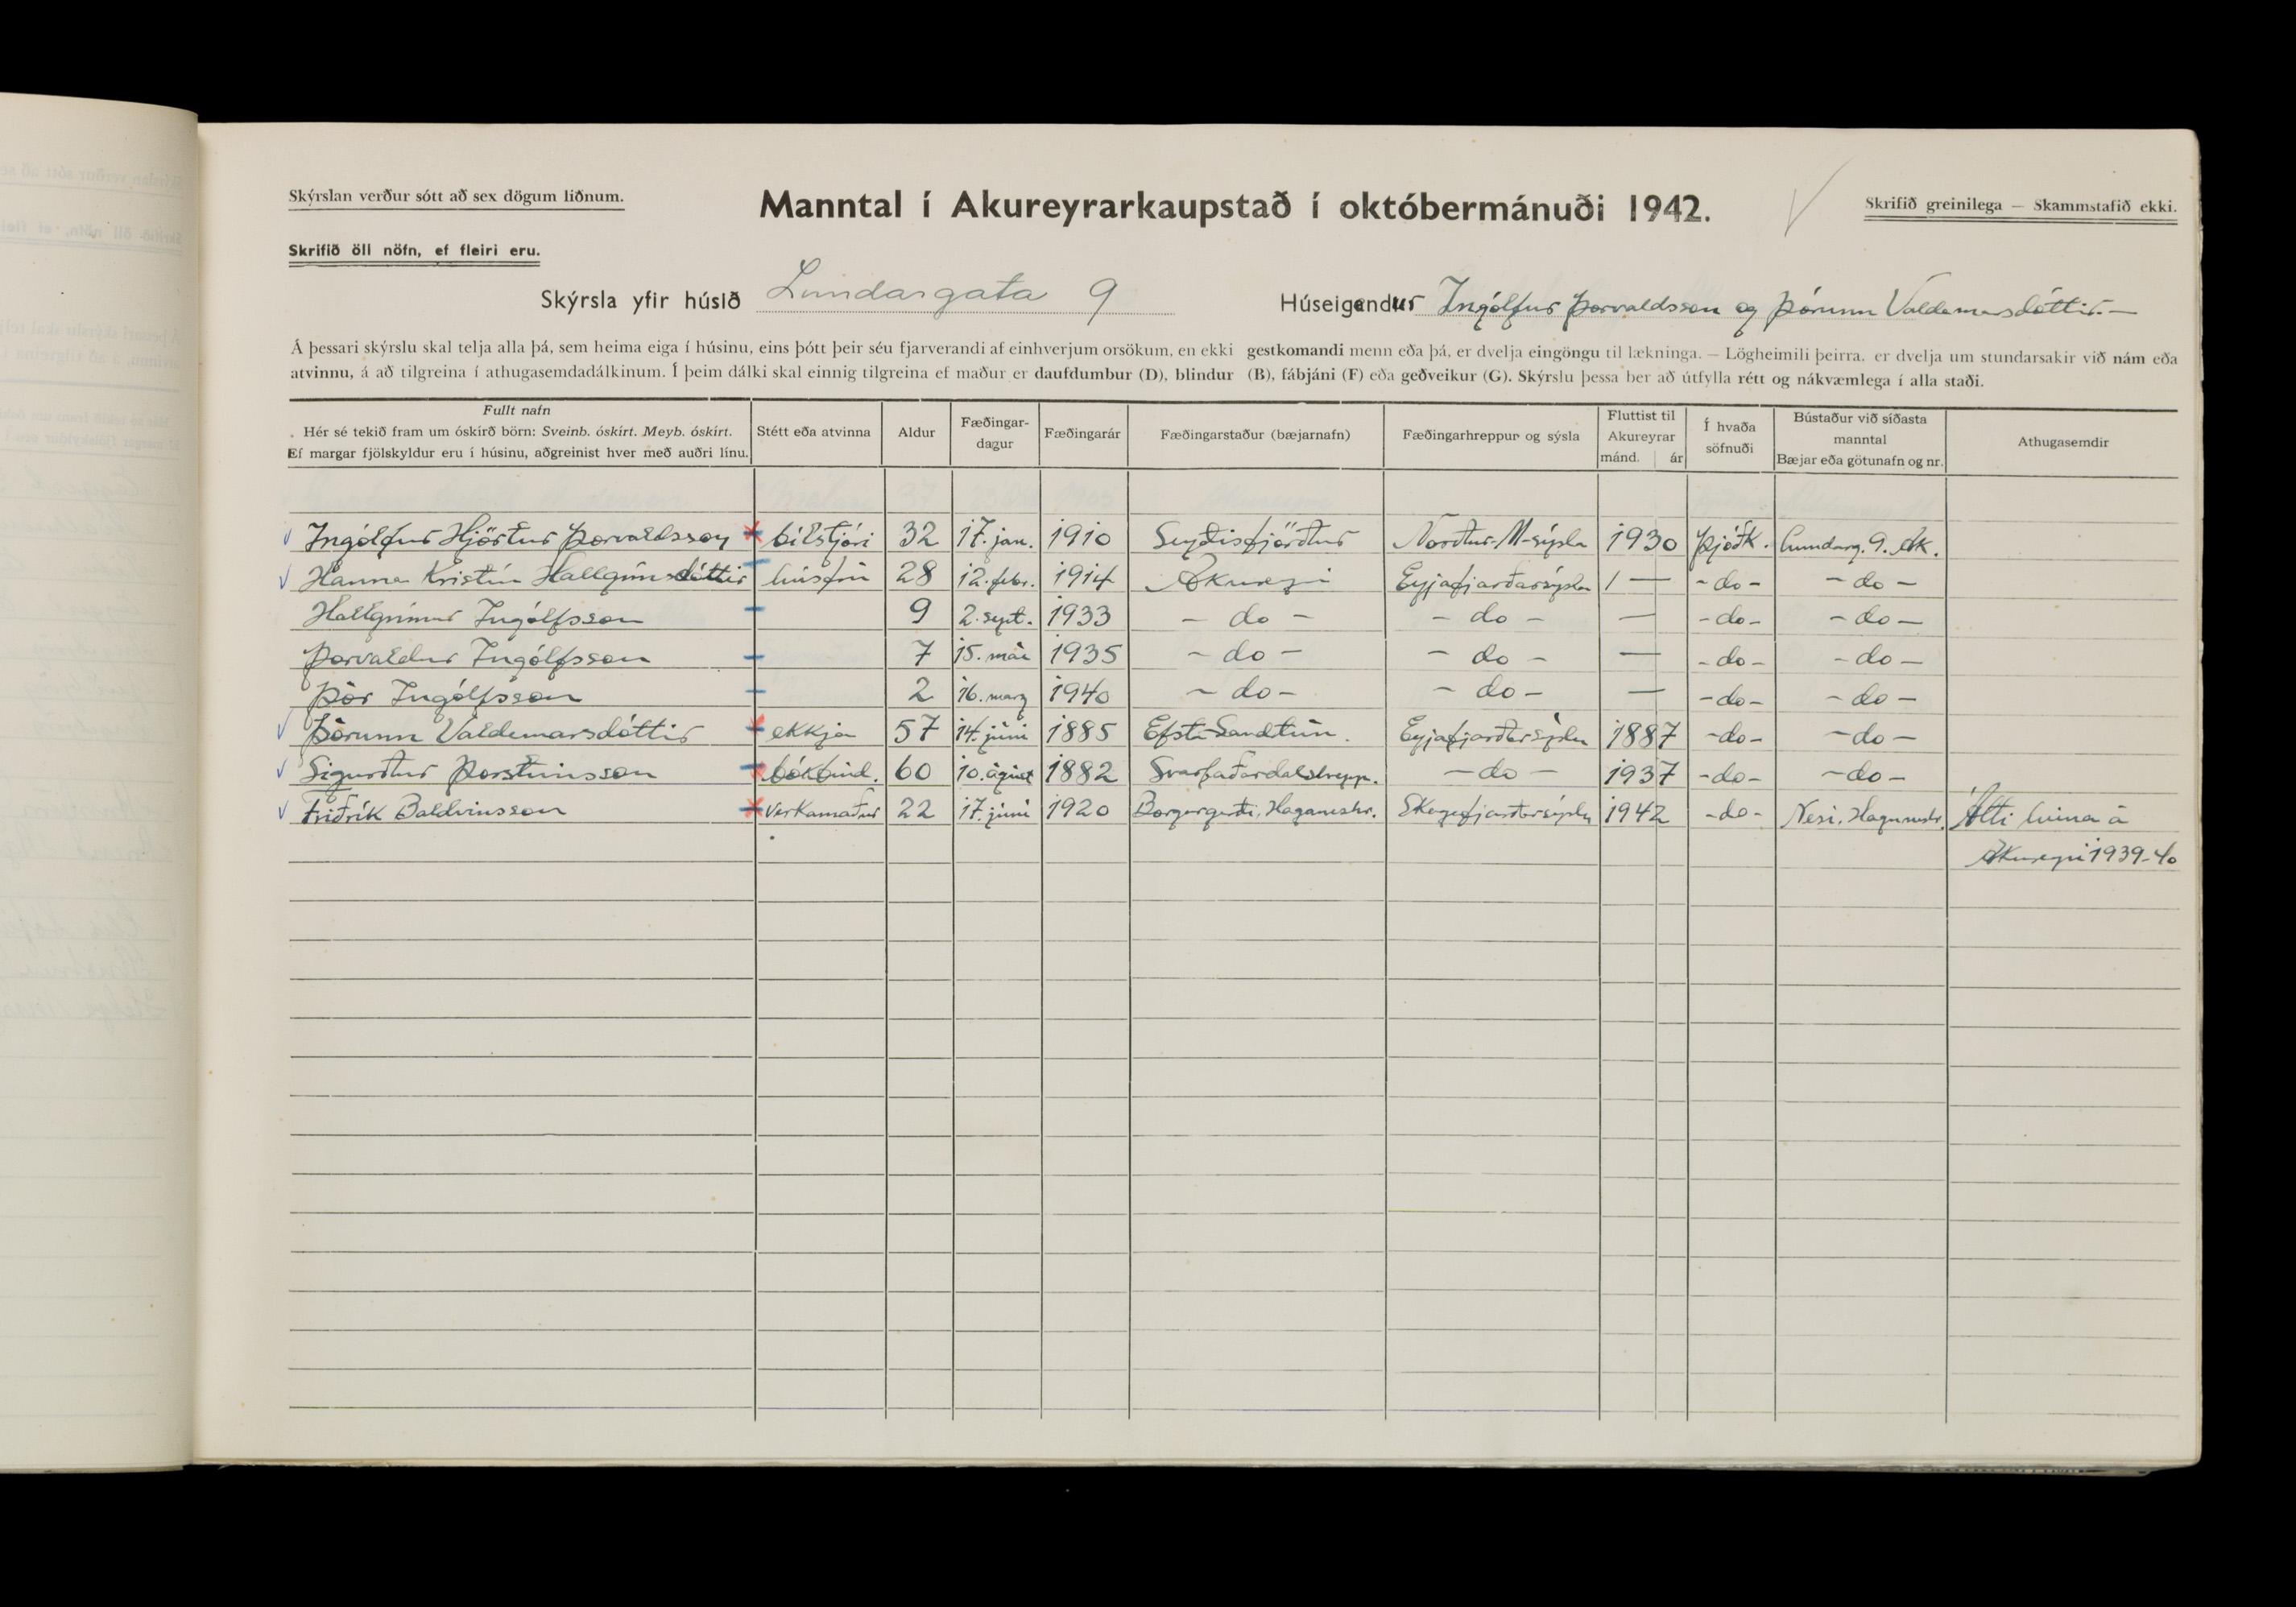 Skýrslan verður sótt að sex dögum liðnum.
Manntal í Akureyrarkaupstað í októbermánuði 1942.
Skrifið greinilega — Skammstafið ekki.
Skrifið öll nöfn, ef fleiri eru.
Skýrsla yfir húsið Lundargata 9
Húseigendur Ingólfur Þorvaldsson og Þórunn Valdemarsdóttir. —
Á þessari skýrslu skal telja alla þá, sem heima eiga í húsinu, eins þótt þeir séu fjarverandi af einhverjum orsökum, en ekki gestkomandi menn eða þá, er dvelja eingöngu til lækninga. — Lögheimili þeirra, er dvelja um stundarsakir við nám eða
atvinnu, á að tilgreina í athugasemdadálkinum. Í þeim dálki skal einnig tilgreina ef maður er daufdumbur (D), blindur (B), fábjáni (F) eða geðveikur (G). Skýrslu þessa ber að útfylla rétt og nákvæmlega í alla staði.
Fullt nafn
Hér sé tekið fram um óskírð börn: Sveinb. óskírt. Meyb. óskírt.
Ef margar fjölskyldur eru í húsinu, aðgreinist hver með auðri línu.
Stétt eða atvinna
Aldur
Fæðingar-
dagur
Fæðingarár
Fæðingarstaður (bæjarnafn)
Fæðingarhreppur og sýsla
Fluttist til
Akureyrar
mánd. ár
Í hvaða
söfnuði
Bústaður við síðasta
manntal
Bæjar eða götunafn og nr.
Athugasemdir
Ingólfur Hjörtur Þorvaldsson bílstjóri 32 17. jan. 1910 Seyðisfjörður Norður-M-sýsla 1930 Þjóðk. Lundarg. 9. Ak.
Hanna Kristín Hallgrímsdóttir húsfrú 28 12. febr. 1914 Akureyri Eyjafjarðarsýsla — - do - - do -
Hallgrímur Ingólfsson 9 2. sept. 1933 - do - - do - — - do - - do -
Þorvaldur Ingólfsson 7 15. maí 1935 - do - - do - — - do - - do -
Þór Ingólfsson 2 16. marz 1940 - do - - do - — - do - - do -
Þórunn Valdemarsdóttir ekkja 57 14. júní 1885 Efsta-Samtún. Eyjafjarðarsýsla 1887 - do - - do -
Sigurður Þorsteinsson bókbind. 60 10. ágúst 1882 Svarfaðardalshrepp. - do - 1937 - do - - do -
Friðrik Baldvinsson verkamaður 22 17. júní 1920 Borgargerði, Haganeshr. Skagafjarðarsýsla 1942 - do - Nesi, Haganeshr. Átti heima á
Akureyri 1939-40